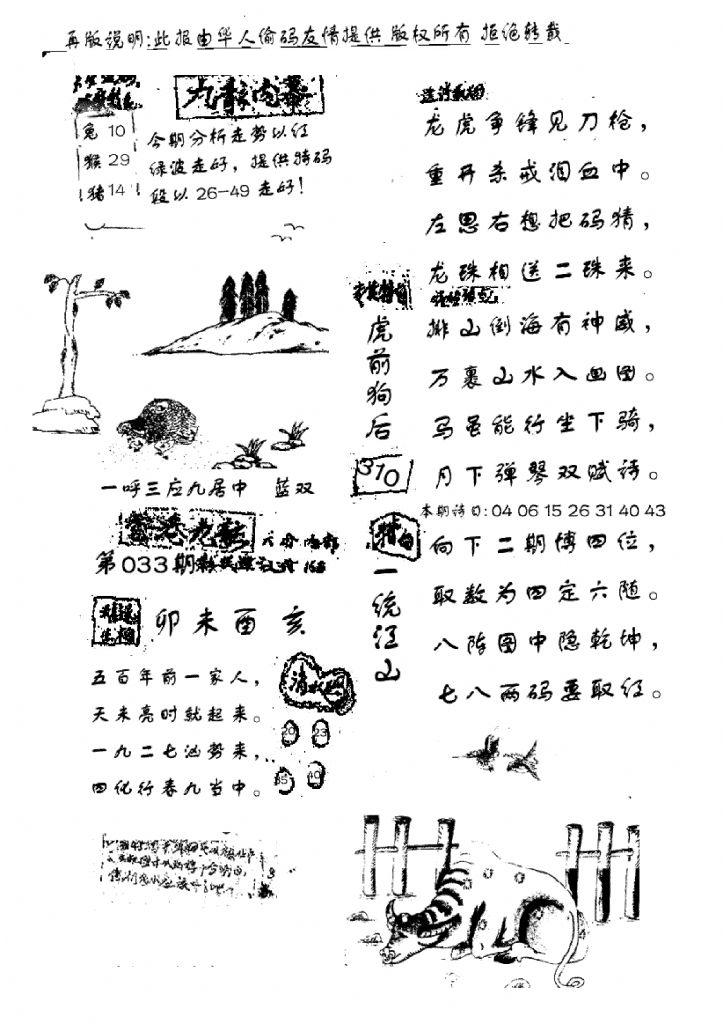 再版说明:此报由华人偷码友情提供 版权所有 拒绝转载
九龍内幕
兔 10
猴 29
猪 14
今期分析走势以红
绿波走好,提供特码
段以 26-49 走好!
一呼三应九居中 蓝双
第033期
卯未酉亥
五百年前一家人,
天未亮时就起来。
一九二七汹势来,
四化行春九当中。
20 23
35 40
龙虎争锋见刀枪,
重开杀戒泪血中。
左思右想把码猜,
龙珠相送二珠来。
虎前狗后
310
排山倒海有神威,
万裏山水入画图。
马虽能行坐下骑,
月下弹琴双赋诗。
本期诗曰:04 06 15 26 31 40 43
一统江山
向下二期博四位,
取数为四定六随。
八阵图中隐乾坤,
七八两码要取红。